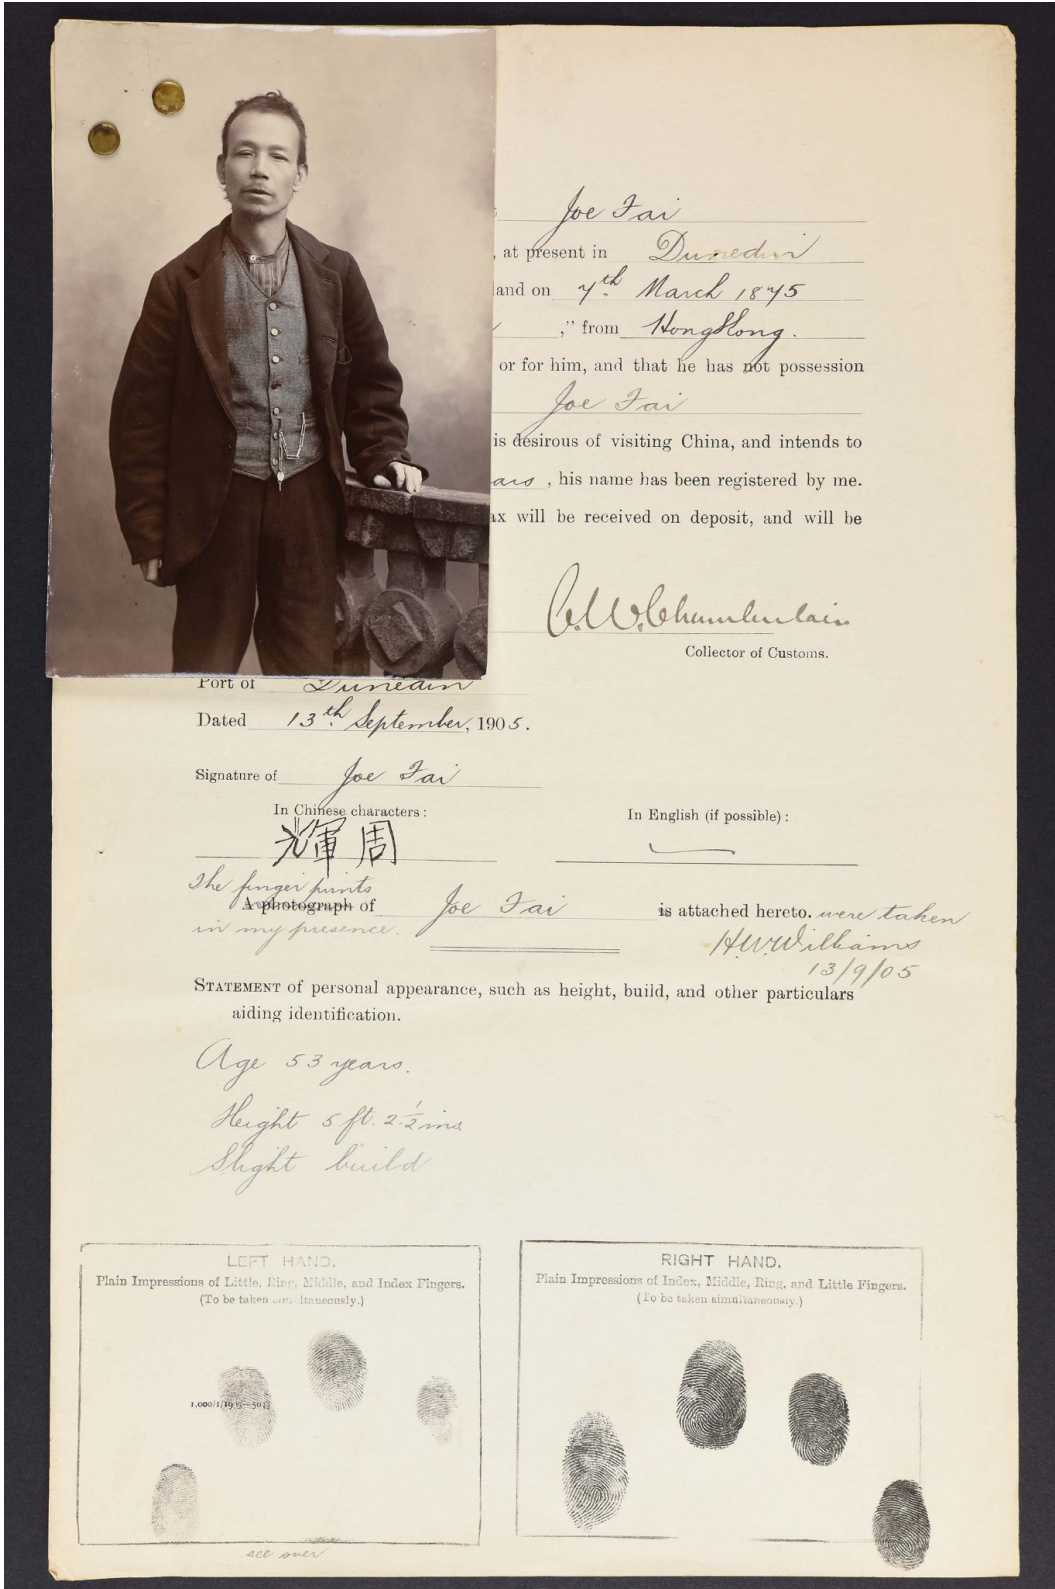 Joe Fai
, at present in Dunedin
and on 7th March 1875
," from Hong Kong.
or for him, and that he has not possession
Joe Fai
is desirous of visiting China, and intends to
ars , his name has been registered by me.
ax will be received on deposit, and will be
C. W. Chamberlain
Collector of Customs.
Port of Dunedin
Dated 13th September, 1905.
Signature of Joe Fai
In Chinese characters: In English (if possible):
輝周
The finger prints
A photograph of Joe Fai is attached hereto. were taken
in my presence. H.W. Williams
13/9/05
STATEMENT of personal appearance, such as height, build, and other particulars
aiding identification.
Age 53 years.
Height 5 ft. 2 1/2 ins
Slight build
LEFT HAND. RIGHT HAND.
Plain Impressions of Little, Ring, Middle, and Index Fingers. Plain Impressions of Index, Middle, Ring, and Little Fingers.
(To be taken simultaneously.) (To be taken simultaneously.)
see over